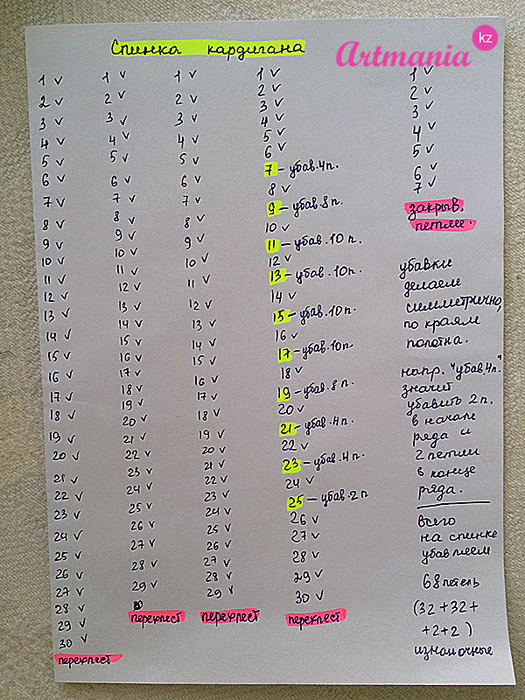 Artmania kz
Спинка кардигана
1 ✓
2 ✓
3 ✓
4 ✓
5 ✓
6 ✓
7 ✓
8 ✓
9 ✓
10 ✓
11 ✓
12 ✓
13 ✓
14 ✓
15 ✓
16 ✓
17 ✓
18 ✓
19 ✓
20 ✓
21 ✓
22 ✓
23 ✓
24 ✓
25 ✓
26 ✓
27 ✓
28 ✓
29 ✓
30 ✓
перехлест
1 ✓
2 ✓
3 ✓
4 ✓
5 ✓
6 ✓
7 ✓
8 ✓
9 ✓
10 ✓
11 ✓
12 ✓
13 ✓
14 ✓
15 ✓
16 ✓
17 ✓
18 ✓
19 ✓
20 ✓
21 ✓
22 ✓
23 ✓
24 ✓
25 ✓
26 ✓
27 ✓
28 ✓
29 ✓
перехлест
1 ✓
2 ✓
3 ✓
4 ✓
5 ✓
6 ✓
7 ✓
8 ✓
9 ✓
10 ✓
11 ✓
12 ✓
13 ✓
14 ✓
15 ✓
16 ✓
17 ✓
18 ✓
19 ✓
20 ✓
21 ✓
22 ✓
23 ✓
24 ✓
25 ✓
26 ✓
27 ✓
28 ✓
29 ✓
перехлест
1 ✓
2 ✓
3 ✓
4 ✓
5 ✓
6 ✓
7 – убав. 4 п.
8 ✓
9 – убав. 8 п.
10 ✓
11 – убав. 10 п.
12 ✓
13 – убав. 10 п.
14 ✓
15 – убав. 10 п.
16 ✓
17 – убав. 10 п.
18 ✓
19 – убав. 8 п.
20 ✓
21 – убав. 4 п.
22 ✓
23 – убав. 4 п.
24 ✓
25 – убав. 2 п
26 ✓
27 ✓
28 ✓
29 ✓
30 ✓
перехлест
1 ✓
2 ✓
3 ✓
4 ✓
5 ✓
6 ✓
7 ✓
закрыв.
петли.
убавки
делаем
симметрично,
по краям
полотна.
напр. "убав 4 п."
значит
убавить 2 п.
в начале
ряда и
2 петли
в конце
ряда.
всего
на спинке
убавляем
68 петель
(32 + 32 +
+2+2)
изнаночные